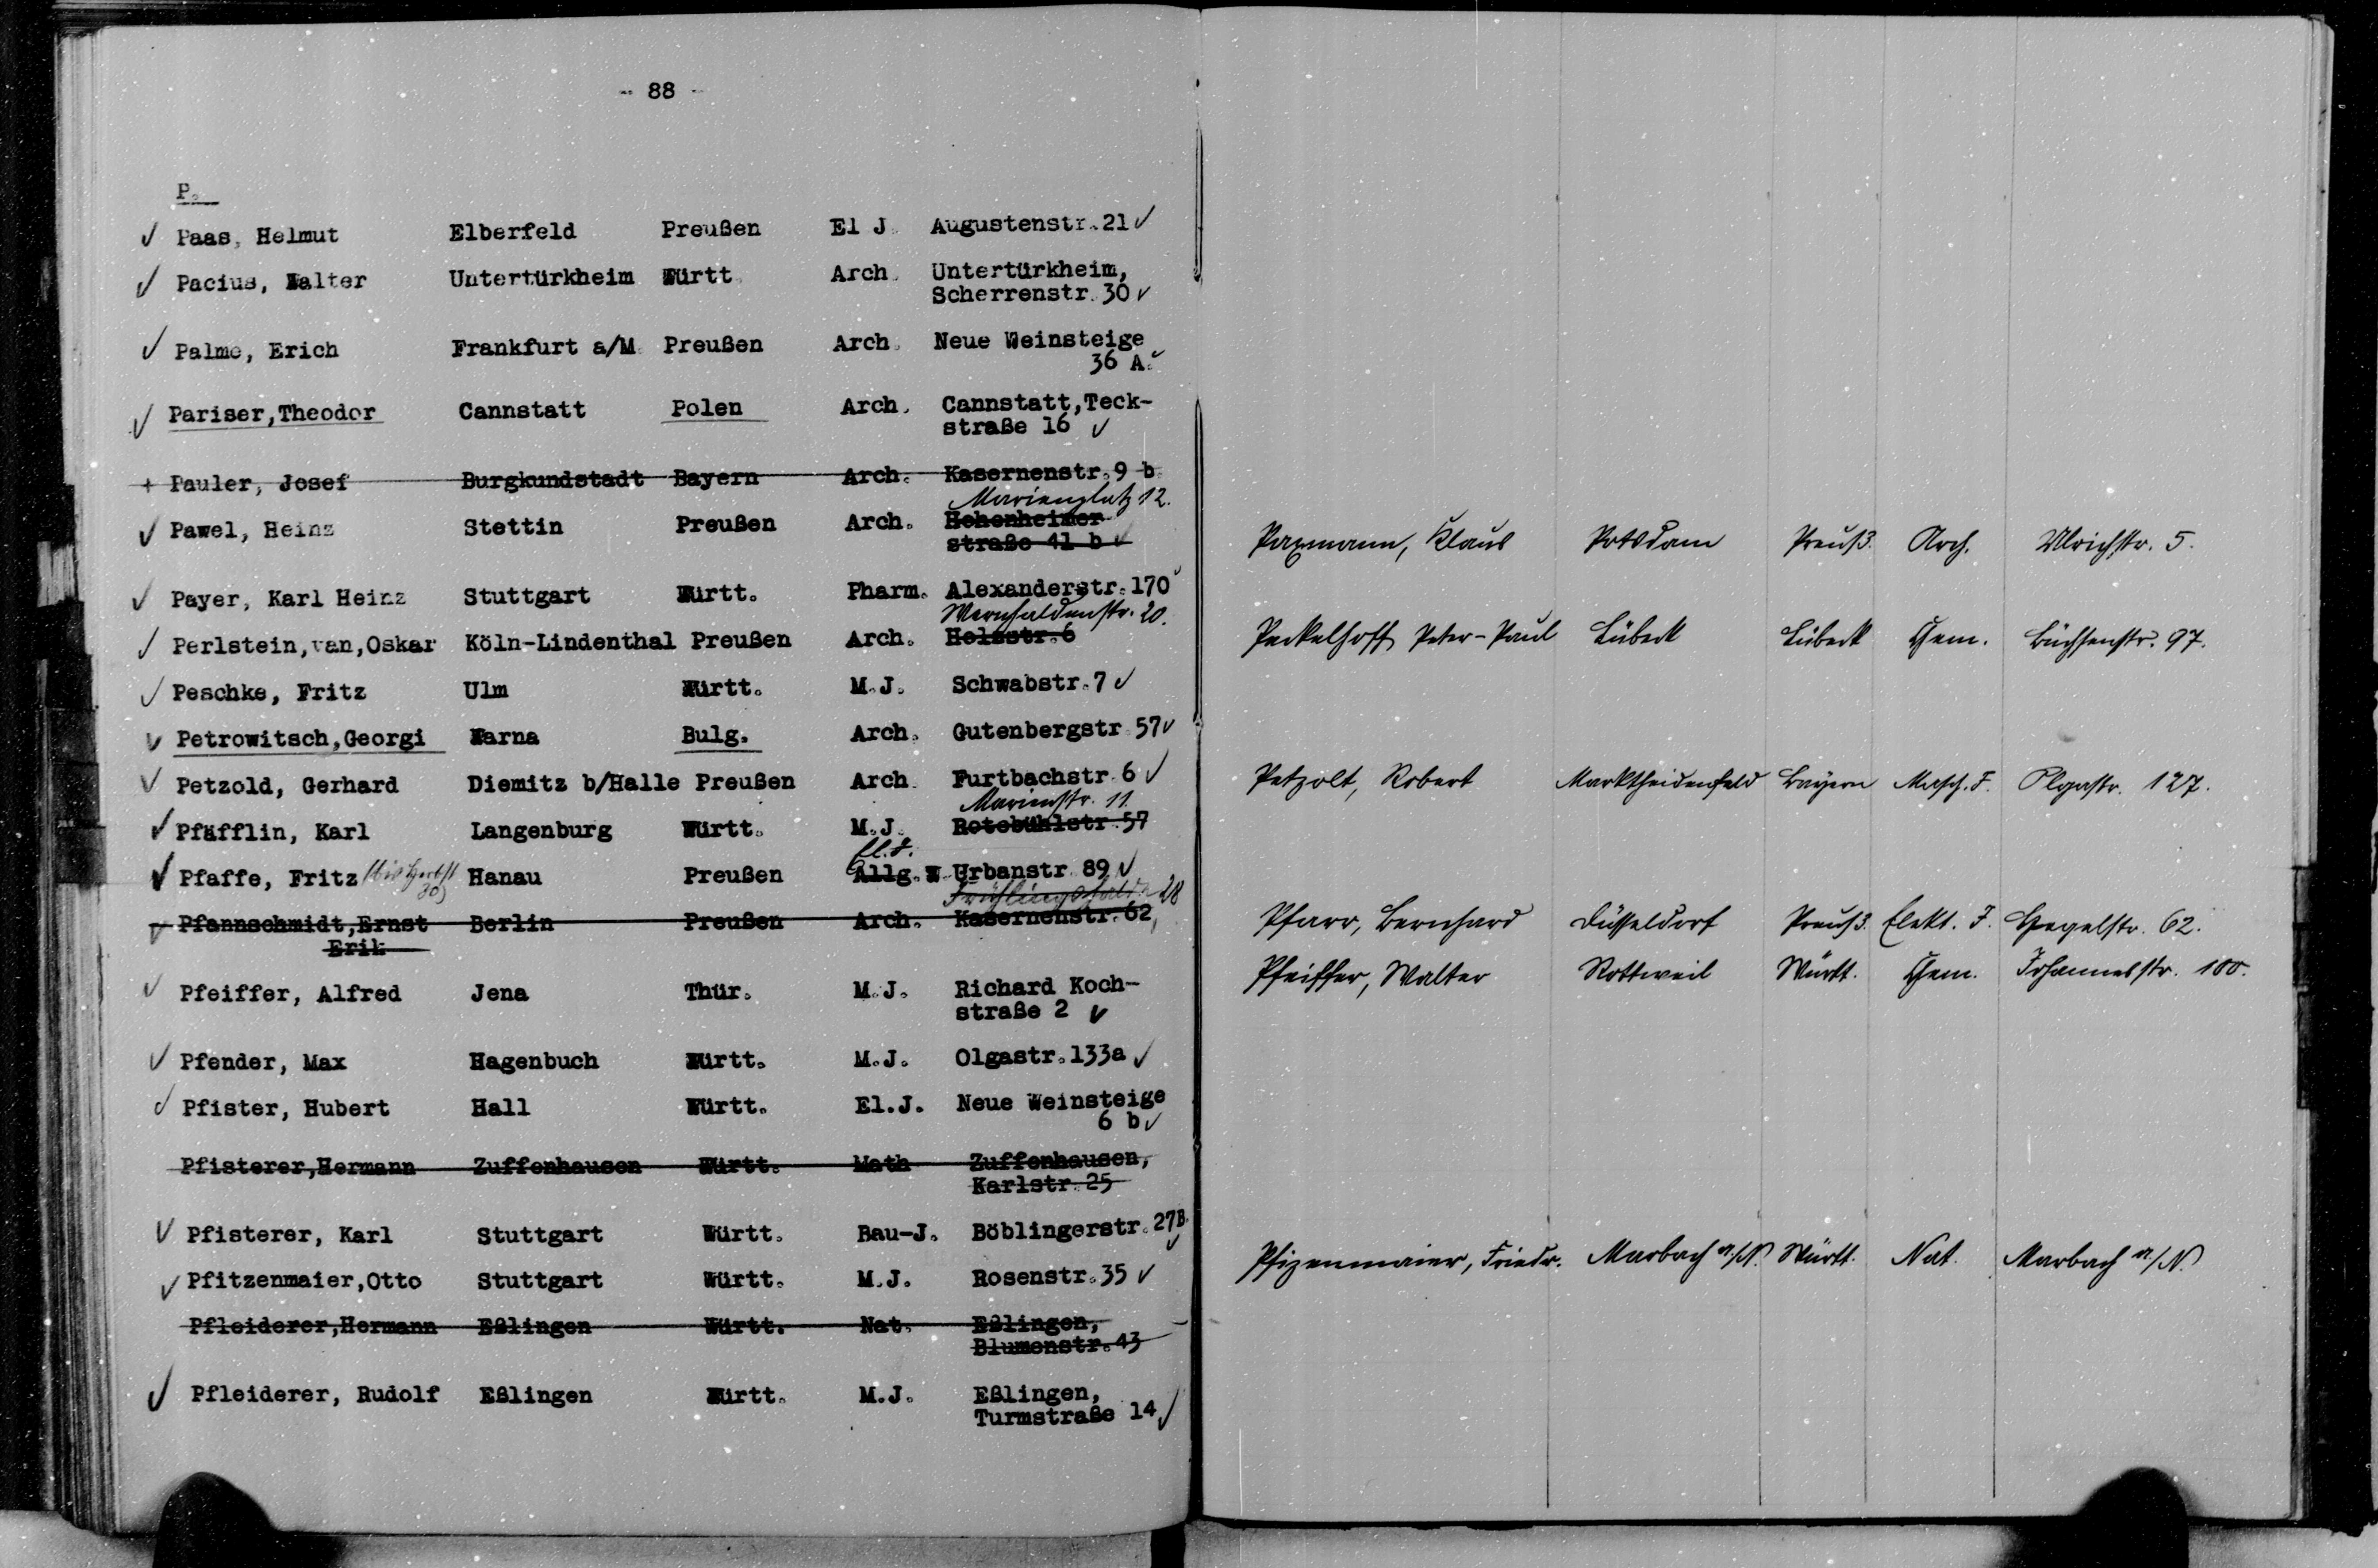 - 88 -
P.
Paas, Helmut Elberfeld Preußen El J. Augustenstr. 21
Pacius, Walter Untertürkheim Württ. Arch. Untertürkheim,
Scherrenstr. 30
Palme, Erich Frankfurt a/M. Preußen Arch. Neue Weinsteige
36 A.
Pariser, Theodor Cannstatt Polen Arch. Cannstatt, Teck-
straße 16
Pauler, Josef Burgkundstadt Bayern Arch. Kasernenstr. 9 b
Marienplatz 12.
Pawel, Heinz Stettin Preußen Arch. Hohenheimer
straße 41 b
Payer, Karl Heinz Stuttgart Württ. Pharm. Alexanderstr. 170
Wernhaldenstr. 20.
Perlstein, van, Oskar Köln-Lindenthal Preußen Arch. Holzstr. 6
Peschke, Fritz Ulm Württ. M.J. Schwabstr. 7
Petrowitsch, Georgi Warna Bulg. Arch. Gutenbergstr 57
Petzold, Gerhard Diemitz b/Halle Preußen Arch. Furtbachstr. 6
Marienstr. 11.
Pfäfflin, Karl Langenburg Württ. M.J. Rotebühlstr. 57
El. J.
Pfaffe, Fritz (bis Herbst 30) Hanau Preußen Allg. W. Urbanstr. 89
Frühlingshalde 28
Pfannschmidt, Ernst Berlin Preußen Arch. Kasernenstr. 62,
Erik
Pfeiffer, Alfred Jena Thür. M.J. Richard Koch-
straße 2
Pfender, Max Hagenbuch Württ. M.J. Olgastr. 133a
Pfister, Hubert Hall Württ. El.J. Neue Weinsteige
6 b
Pfisterer, Hermann Zuffenhausen Württ. Math Zuffenhausen,
Karlstr. 25
Pfisterer, Karl Stuttgart Württ. Bau-J. Böblingerstr. 27B.
Pfitzenmaier, Otto Stuttgart Württ. M.J. Rosenstr. 35
Pfleiderer, Hermann Eßlingen Württ. Nat. Eßlingen,
Blumenstr. 43
Pfleiderer, Rudolf Eßlingen Württ. M.J. Eßlingen,
Turmstraße 14
Paxmann, Klaus Potsdam Preuß. Arch. Ulrichstr. 5.
Peckelhoff, Peter-Paul Lübeck Lübeck Chem. Büchsenstr. 97.
Petzolt, Robert Marktheidenfeld Bayern Masch. J. Olgastr. 127.
Pfarr, Bernhard Düsseldorf Preuß. Elekt. J. Hegelstr. 62.
Pfeiffer, Walter Rottweil Württ. Chem. Johannesstr. 100.
Pfizenmaier, Friedr. Marbach a./N. Württ. Nat. Marbach a./N.